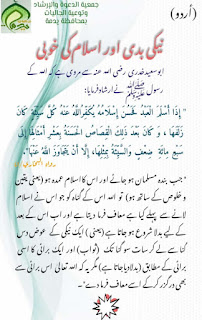 (اُردو)
جمعية الدعوة والإرشاد
وتوعية الجاليات
بمحافظة بدمة
نیکی بدی اور اسلام کی خوبی
ابو سعید خدری رضی اللہ عنہ سے مروی ہے کہ اللہ کے
رسول ﷺ نے ارشاد فرمایا:
" إِذَا أَسْلَمَ الْعَبْدُ فَحَسُنَ إِسْلَامُهُ يُكَفِّرُ اللَّهُ عَنْهُ كُلَّ سَيِّئَةٍ كَانَ
زَلَفَهَا ، وَكَانَ بَعْدَ ذَلِكَ الْقِصَاصُ الْحَسَنَةُ بِعَشْرِ أَمْثَالِهَا إِلَى
سَبْعِ مِائَةِ ضِعْفٍ وَالسَّيِّئَةُ بِمِثْلِهَا، إِلَّا أَنْ يَتَجَاوَزَ اللَّهُ عَنْهَا".
"جب بندہ مسلمان ہو جائے اور اس کا اسلام عمدہ ہو (یعنی یقین
وخلوص کے ساتھ ہو) تو اللہ اس کے گناہ کو جو اس نے اسلام
لانے سے پہلے کیا ہے معاف فرما دیتا ہے اور اب اس کے بعد
کے لیے بدلا شروع ہو جاتا ہے (یعنی) ایک نیکی کے عوض دس
گنا سے لے کر سات سو گنا تک (ثواب) اور ایک برائی کا اسی
برائی کے مطابق (بدلا دیا جاتا ہے) مگر یہ کہ اللہ تعالیٰ اس برائی سے
بھی درگزر کرے اسے معاف فرما دے"۔